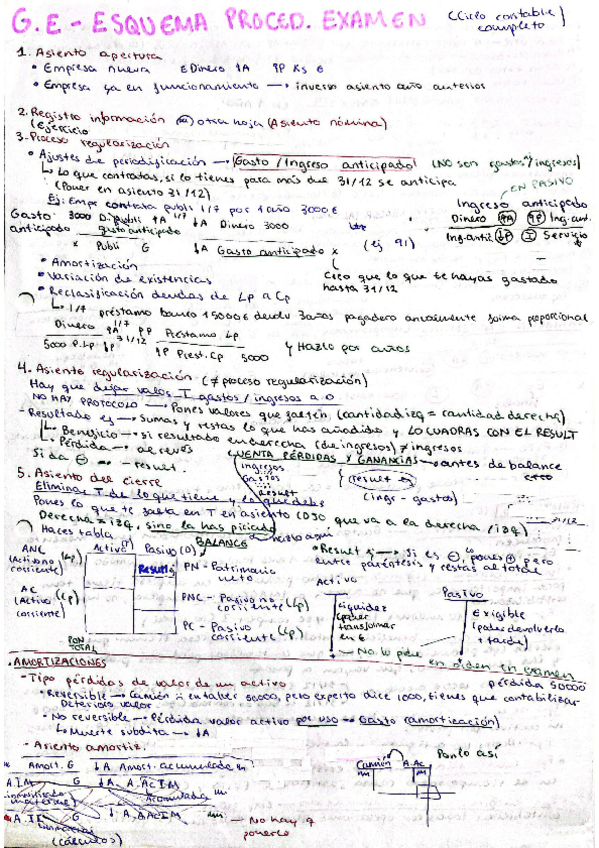 G.E - ESQUEMA PROCED. EXAMEN (Ciclo contable completo)
1. Asiento apertura
• Empresa nueva €Dinero ↑A ↑P Ks €
• Empresa ya en funcionamiento → inverso asiento año anterior
2. Registro información otra hoja (Asiento nómina)
(Ejercicio
3-Proceso regularización
• Ajustes de periodificación → Gasto/Ingreso anticipado (NO son gastos/ingresos)
↳ Lo que contratas, si lo tienes para más de 31/12 se anticipa
(Poner en asiento 31/12)
EN PASIVO
Ej: Empr contrata publi 1/7 por 1 año 3000€
Ingreso anticipado
Dinero ↑A ↑P Ing. ant.
Ing. anti ↓P I Servicio
Gasto anticipado
3000 D. publi ↑A 1/7 ↓A Dinero 3000
gasto anticipado
x Publi G ↓A Gasto anticipado x
(ej 91)
Creo que lo que te hayas gastado
hasta 31/12
• Amortización
• Variación de existencias
• Reclasificación deudas de Lp a Cp
↳ 1/7 préstamo banco 15000€ devolu 3 años pagadero anualmente forma proporcional
Dinero ↑A 1/7 ↑P Préstamo Lp
5000 P.Lp ↓P 31/12 ↑P Prest. Cp 5000 y Hazlo por años
4. Asiento regularización (≠ proceso regularización)
Hay que dejar valor T gastos / ingresos a 0
NO HAY PROTOCOLO → Pones valores que salgen, (cantidad izq = cantidad derecha)
- Resultado es → Sumas y restas lo que has añadido y LO CUADRAS CON EL RESULT
↳ Beneficio → si resultado en derecha (de ingresos) ≠ ingresos
↳ Pérdida → al revés
Si da ⊖ → - result.
CUENTA PÉRDIDAS Y GANANCIAS → antes de balance
Ingresos
Gastos
Result
(result
(ings - gastos)
5. Asiento del cierre
Eliminar T de lo que tiene y lo que debes
Pones lo que te falta en T en asiento (0 50 que va a la derecha / izq) 31/12
Derecha = izq, sino la has piciado
Haces tabla,
hazlo aquí
BALANCE
ANC (Activo no corriente) (Lp)
AC (Activo corriente) (Cp)
Activo Pasivo (D)
Result
PN - Patrimonio neto
PNC - Pasivo no corriente (Lp)
PC - Pasivo corriente (Cp)
PON TOTAL
• Result → Si es ⊖, lo pones ⊕ pero
entre paréntesis y restas al total
Activo
Liquidez
(poder
transformar
en €
Pasivo
Exigible
(poder devolverlo
+ tarde)
→ No lo pide en orden en examen
• AMORTIZACIONES
- Tipo pérdidas de valor de un activo
pérdida 50000
• Reversible → Camión en taller 50000, pero experto dice 1000, tienes que contabilizar
Deterioro valor
• No reversible → Pérdida valor activo por uso → Gasto (amortización)
↳ Muerte subdita → ↓A
- Asiento amortiz.
Amort. G ↓A Amort. acumulada
A.IM G ↓A A.AcIM
(inmovilizado material)
Acumulada
A.II G ↓A A.AcIM
(cálculos)
→ No hay q ponerlo
Ponlo así
Camión A.Ac